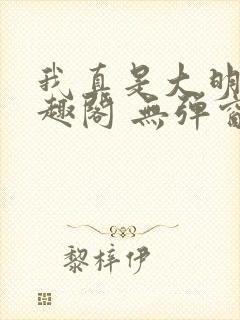 我真是大明
趣阁 無弹窗
黎梓伊